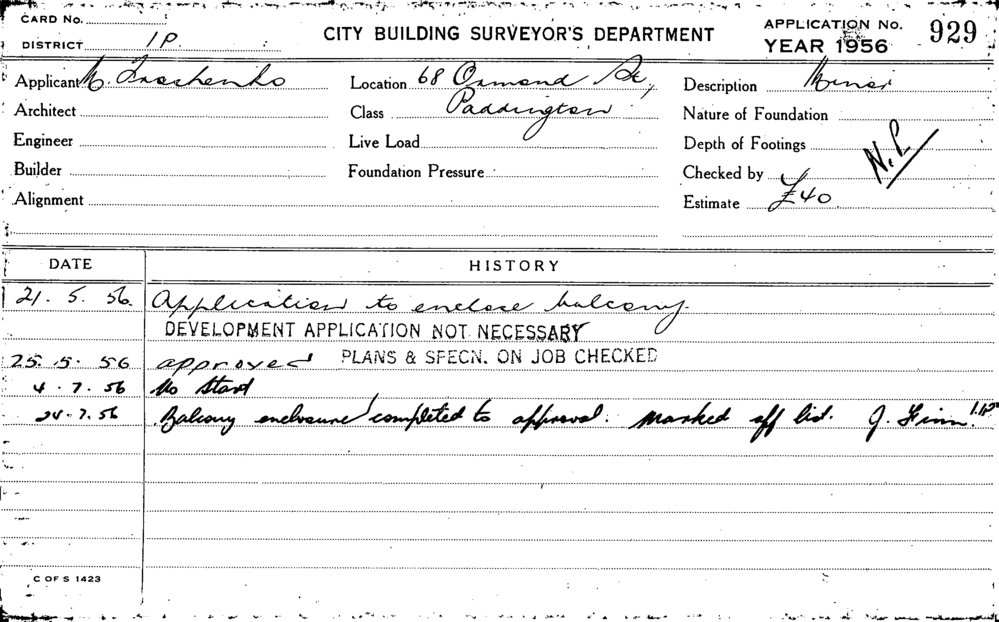 CARD No.
DISTRICT 1P.
CITY BUILDING SURVEYOR'S DEPARTMENT
APPLICATION No. 929
YEAR 1956
Applicant M.
Location 68 Ormond St,
Description Minor
Architect
Class Paddington
Nature of Foundation
Engineer
Live Load
Depth of Footings
N.P.
Builder
Foundation Pressure
Checked by
Alignment
Estimate £40
DATE
HISTORY
21. 5. 56. Application to enclose balcony.
DEVELOPMENT APPLICATION NOT NECESSARY
25. 5. 56 approved PLANS & SPECN. ON JOB CHECKED
4. 7. 56 No Start
24. 7. 56 Balcony enclosure completed to approval. Marked off list. J. Finn
C OF S 1423